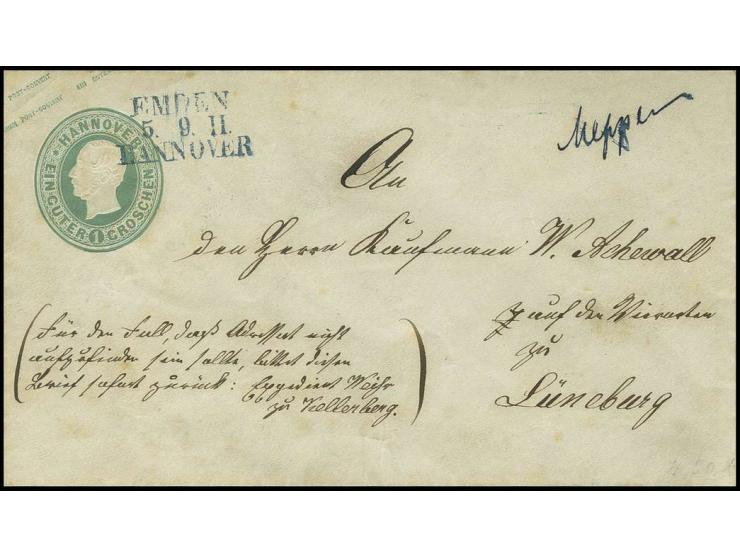 POST-COUVERT EIN GUTER
POST-COUVERT
HANNOVER
EIN GUTER GROSCHEN
1
EMDEN
5. 9. 11.
HANNOVER
Meppen
An
den Herrn Kaufmann W. Achewall
auf den Viersorten
zu
Lüneburg
(Für den Fall, daß Adressat nicht
aufzufinden sein sollte, bittet diesen
Brief sofort zurück: Expedient Weihe
zu Kellerberg.)